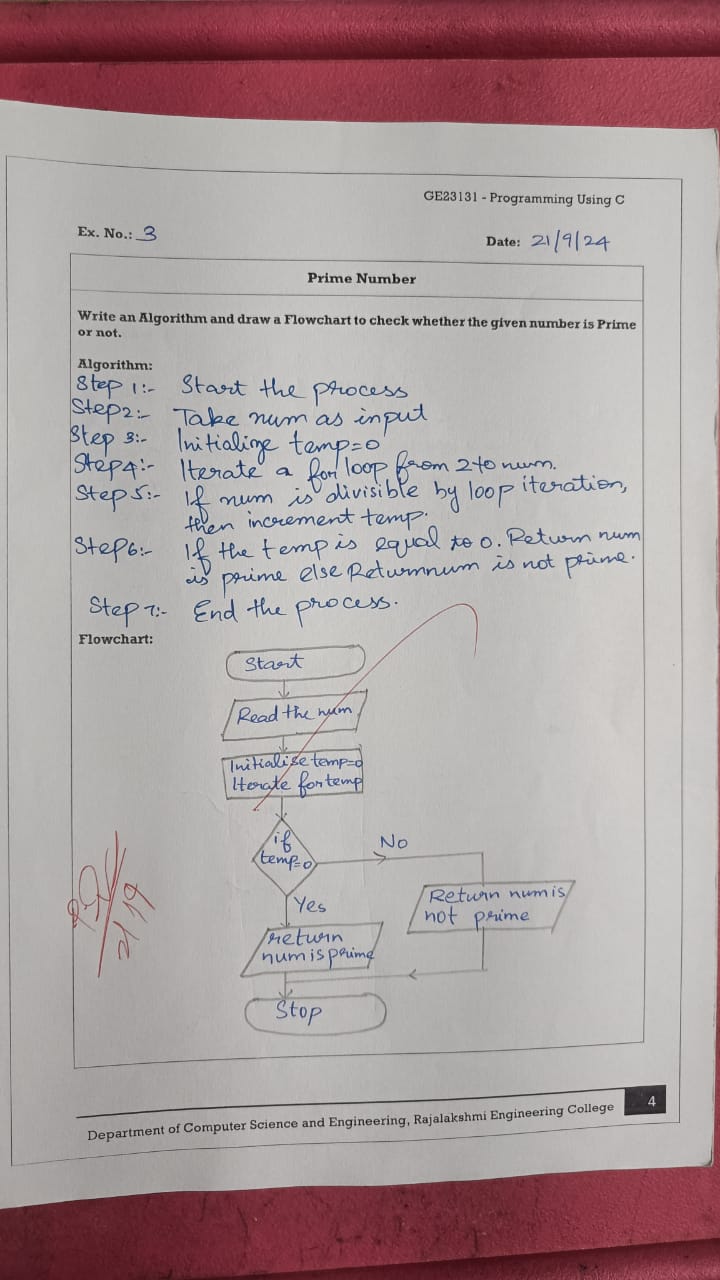 GE23131 - Programming Using C
Ex. No.: 3
Date: 21/9/24
Prime Number
Write an Algorithm and draw a Flowchart to check whether the given number is Prime
or not.
Algorithm:
Step 1:- Start the process
Step2:- Take num as input
Step 3:- Initialize temp=0
Step4:- Iterate a for loop from 2 to num.
Step5:- If num is divisible by loop iteration,
then increment temp.
Step6:- If the temp is equal to 0. Return num
is prime else Return num is not prime.
Step 7:- End the process.
Flowchart:
Start
Read the num
Initialise temp=0
Iterate for temp
if
temp=0
No
Yes
Return num is
not prime
return
num is prime
Stop
21/9
4
Department of Computer Science and Engineering, Rajalakshmi Engineering College